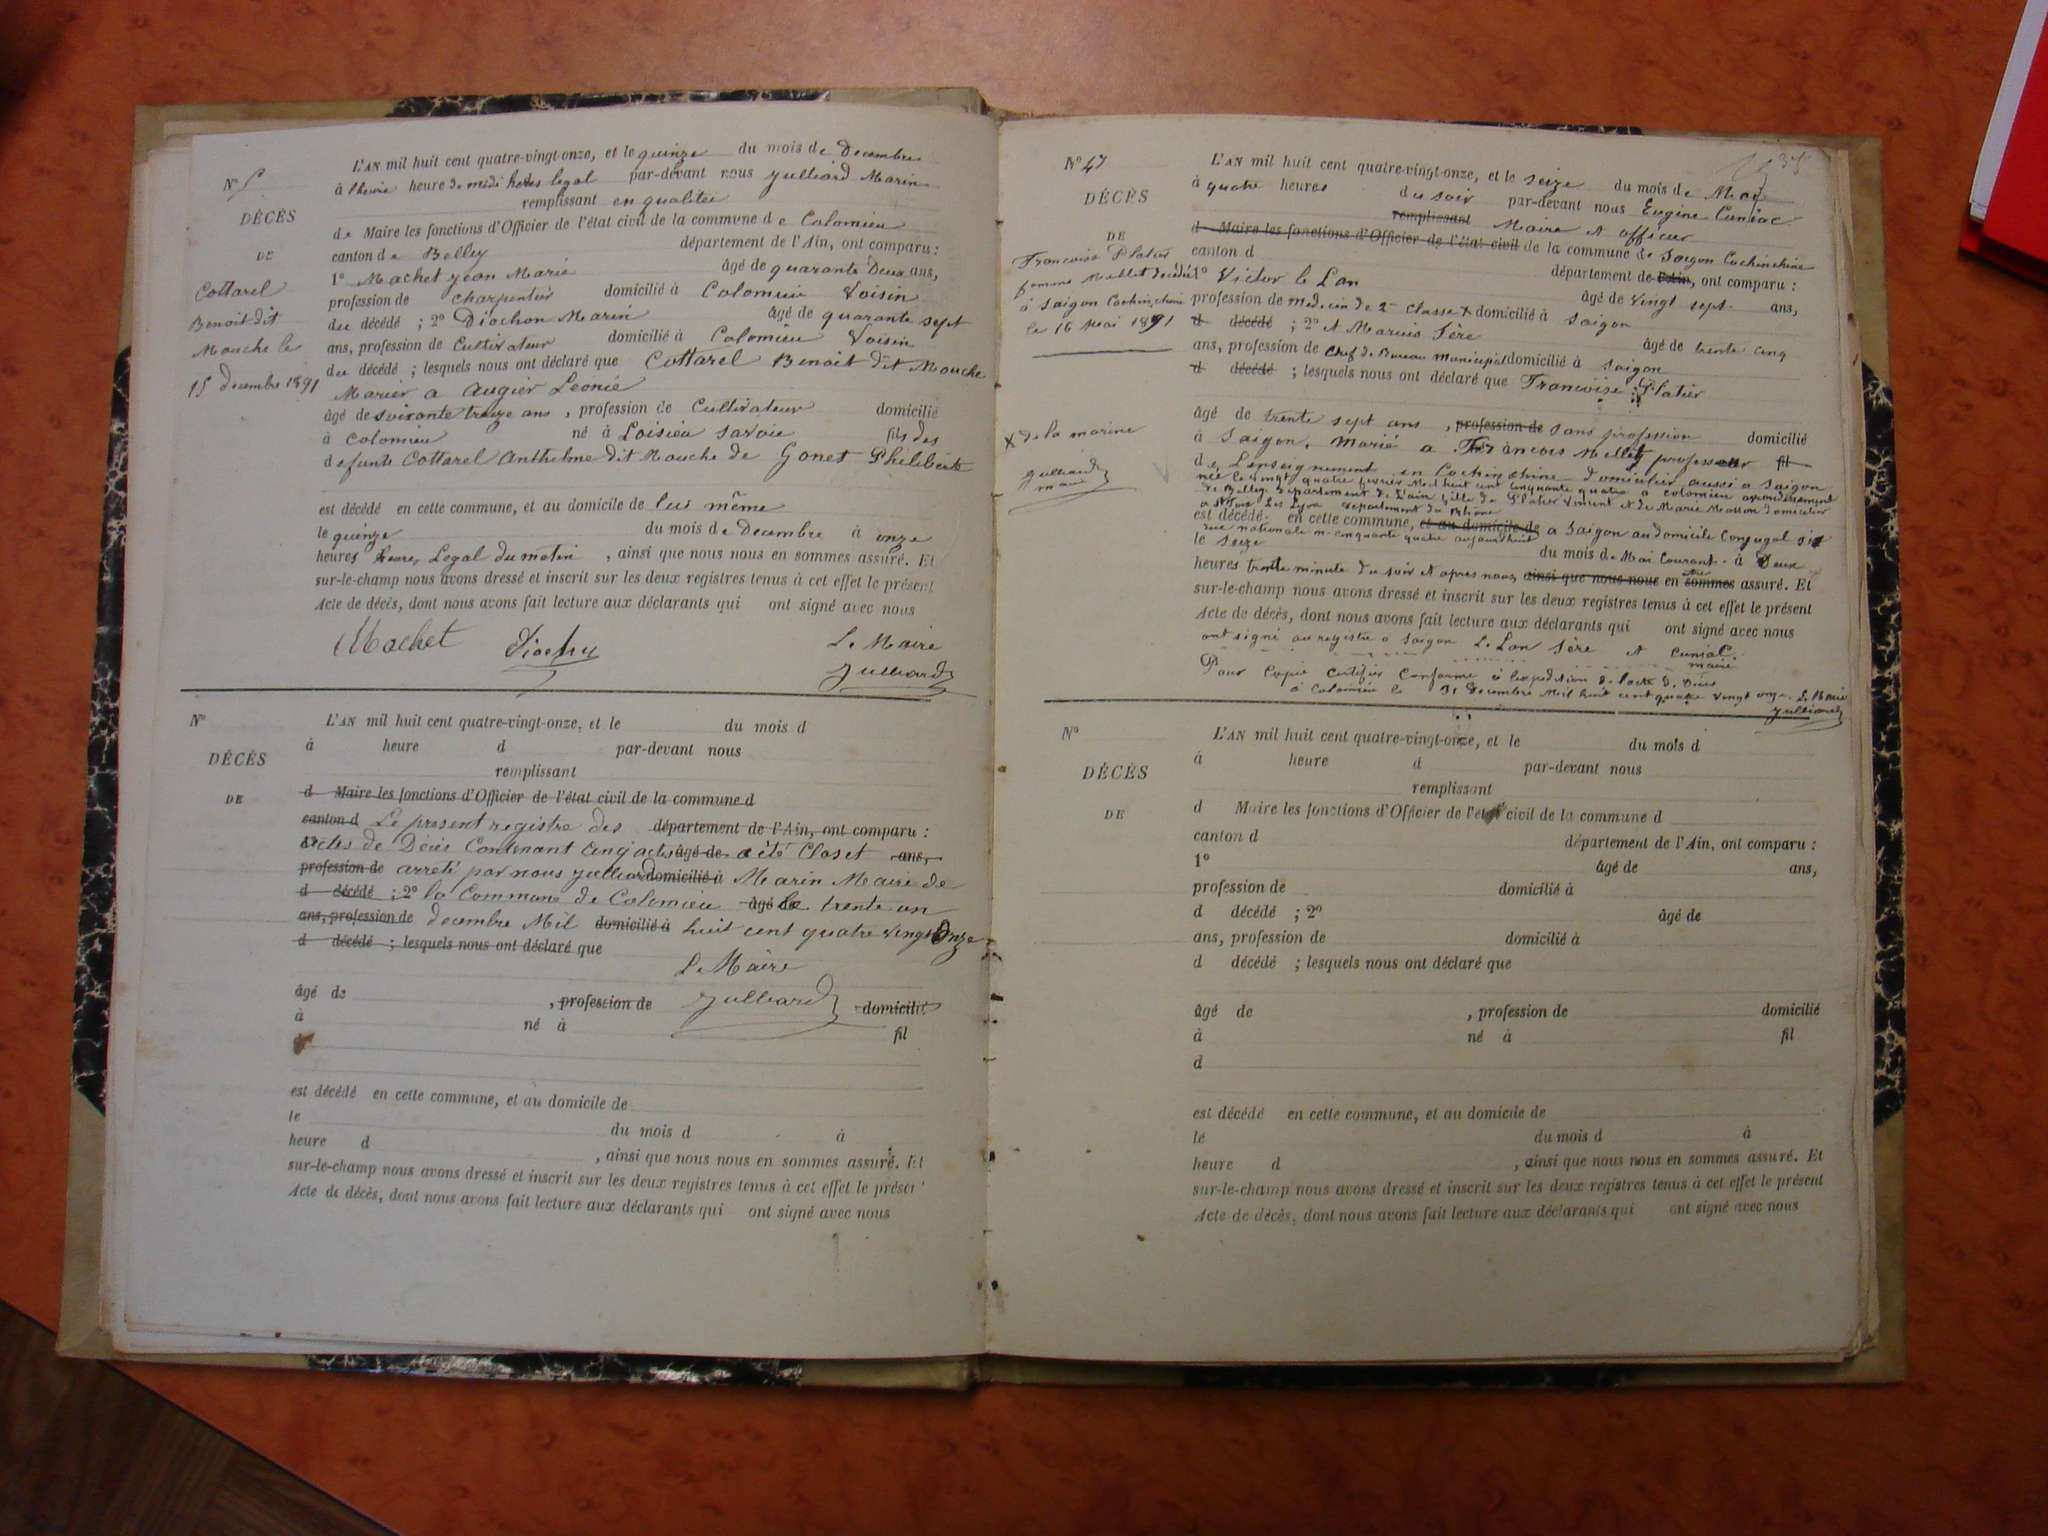 N° 5
DÉCÈS
DE
Cottarel
Benoit dit
Mouche le
15 decembre 1891
L'AN mil huit cent quatre-vingt-onze, et le quinze du mois de Decembre
à heure de midi legal par-devant nous Julliard Marin
remplissant en qualitée
de Maire les fonctions d'Officier de l'état civil de la commune de Colomieu
canton de Belley département de l'Ain, ont comparu :
1° Machet Jean Marie âgé de quarante Deux ans,
profession de charpentier domicilié à Colomieu Voisin
du décédé ; 2° Diochon Marin âgé de quarante sept
ans, profession de Cultivateur domicilié à Colomieu Voisin
du décédé ; lesquels nous ont déclaré que Cottarel Benoit dit Mouche
Marier a Augier Léonie
âgé de soixante treize ans , profession de Cultivateur domicilié
à Colomieu né à Loisieu Savoie fils des
defunts Cottarel Anthelme dit Mouche de Gonet Philiberte
est décédé en cette commune, et au domicile de lui même
le quinze du mois de Decembre à onze
heures heure Legal du matin , ainsi que nous nous en sommes assuré. Et
sur-le-champ nous avons dressé et inscrit sur les deux registres tenus à cet effet le présent
Acte de décès, dont nous avons fait lecture aux déclarants qui ont signé avec nous
Machet Le Maire
Julliard
N°
DÉCÈS
DE
L'AN mil huit cent quatre-vingt-onze, et le du mois d
à heure d par-devant nous
remplissant
d Maire les fonctions d'Officier de l'état civil de la commune d
canton d Le present registre des département de l'Ain, ont comparu :
actes de Décès Contenant Cinq actes âgé de a été Closet ans,
profession de arreté par nous Julliard domicilié à Marin Maire de
d décédé ; 2° la Commune de Colomieu âgé de le trente un
ans, profession de decembre Mil domicilié à huit cent quatre vingt Onze
d décédé ; lesquels nous ont déclaré que
Le Maire
âgé de , profession de Julliard domicilié
à né à fil
est décédé en cette commune, et au domicile de
le du mois d à
heure d , ainsi que nous nous en sommes assuré. Et
sur-le-champ nous avons dressé et inscrit sur les deux registres tenus à cet effet le présent
Acte de décès, dont nous avons fait lecture aux déclarants qui ont signé avec nous
35
N° 47
DÉCÈS
DE
Francoise Platier
femme Mellet decédée
à Saigon Cochinchine
le 16 Mai 1891
X de la marine
Julliard
maire
L'AN mil huit cent quatre-vingt-onze, et le seize du mois de Mai
à quatre heures du soir par-devant nous Eugène Cuniac
remplissant Maire et officier
d Maire les fonctions d'Officier de l'état civil de la commune de Saigon Cochinchine
canton d département de l'Ain, ont comparu :
1° Victor le Lan âgé de vingt sept ans,
profession de medecin de 2me classe X domicilié à Saigon
d décédé ; 2° et Marius Sère âgé de trente cinq
ans, profession de Chef de Bureau Municipal domicilié à Saigon
d décédé ; lesquels nous ont déclaré que Francoise Platier
âgé de trente sept ans , profession de sans profession domicilié
à Saigon, marié a François Mellet professeur fil
de L'enseignement en Cochinchine domicilier aussi a Saigon
née le vingt quatre fevrier Mil huit cent cinquante quatre a colomieu arondissement
de Belley departement de L'ain fille de Platier Vincent et de Marie Masson domicilier
departement du Rhône
est décédé en cette commune, et au domicile de a Saigon au domicile Conjugal sis
rue nationale n° cinquante quatre aujourdhuit
le seize du mois de Mai Courant à Deux
heures trente minute du soir et apres nous ainsi que nous nous en être sommes assuré. Et
sur-le-champ nous avons dressé et inscrit sur les deux registres tenus à cet effet le présent
Acte de décès, dont nous avons fait lecture aux déclarants qui ont signé avec nous
ont signé au registre a Saigon Le Lan Sère et Cuniac
maire
Pour Copie certifier Conforme à l'expedition de l'acte de Décès
à Colomieu le 31 Decembre Mil huit cent quatre vingt onze. Le Maire
Julliard
N°
DÉCÈS
DE
L'AN mil huit cent quatre-vingt-onze, et le du mois d
à heure d par-devant nous
remplissant
d Maire les fonctions d'Officier de l'état civil de la commune d
canton d département de l'Ain, ont comparu :
1° âgé de ans,
profession de domicilié à
d décédé ; 2° âgé de
ans, profession de domicilié à
d décédé ; lesquels nous ont déclaré que
âgé de , profession de domicilié
à né à fil
d
est décédé en cette commune, et au domicile de
le du mois d à
heure d , ainsi que nous nous en sommes assuré. Et
sur-le-champ nous avons dressé et inscrit sur les deux registres tenus à cet effet le présent
Acte de décès, dont nous avons fait lecture aux déclarants qui ont signé avec nous